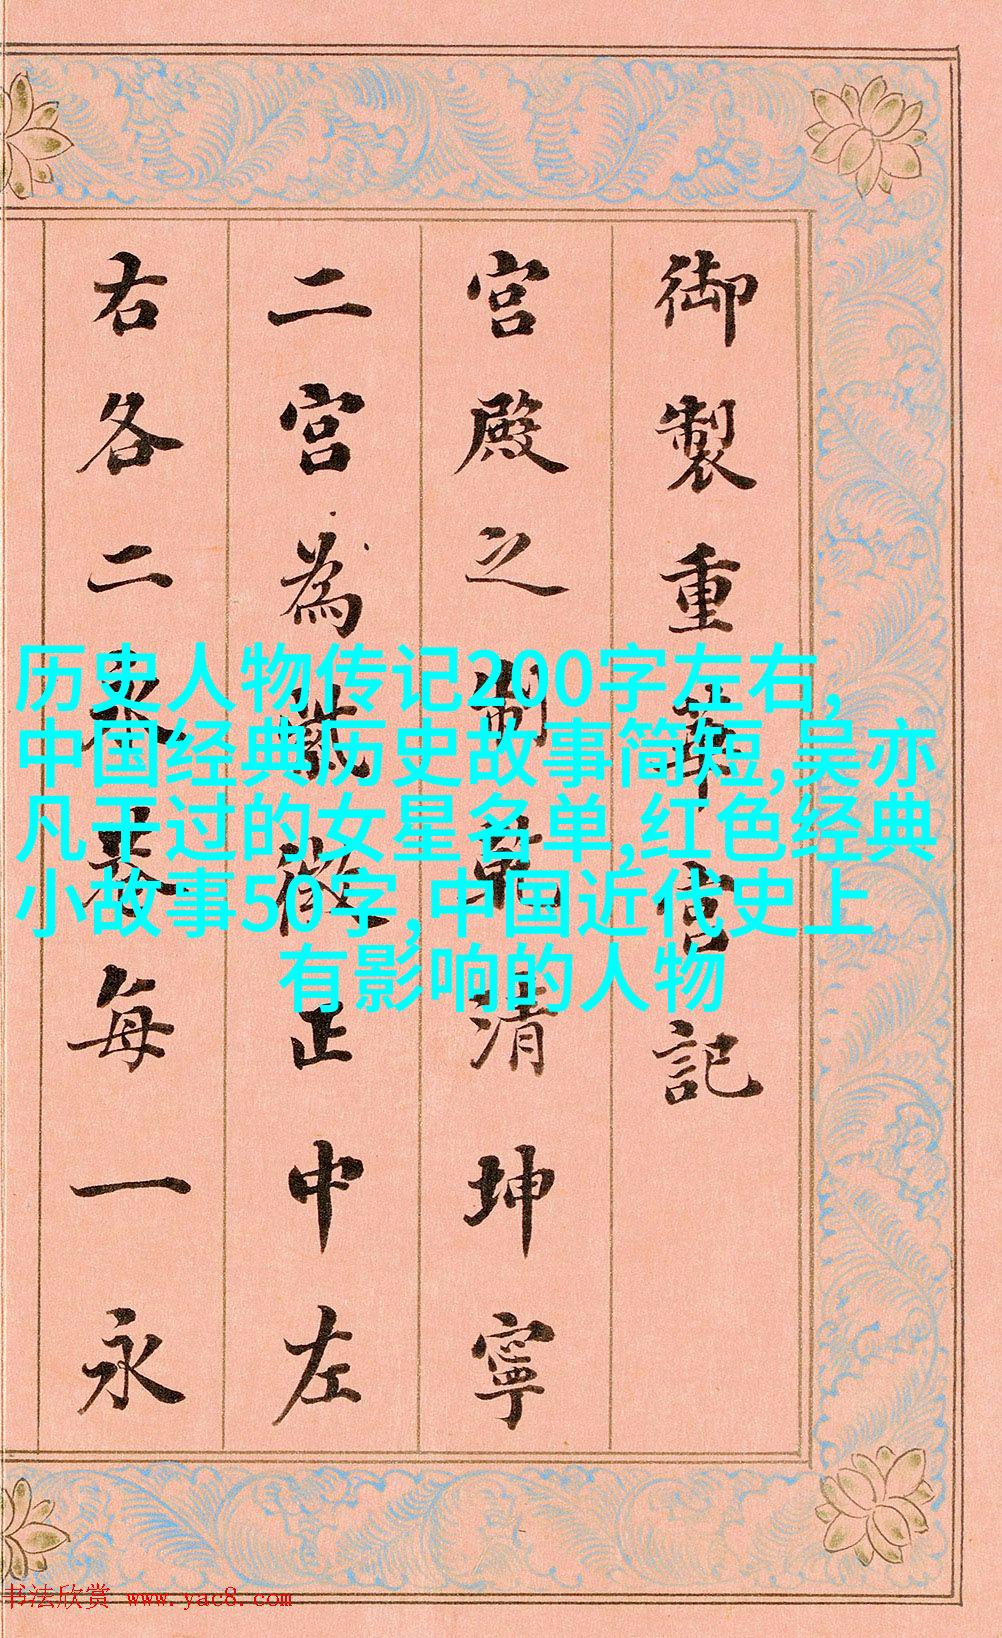 御製重華宮記
宮殿之制乾清坤寧
二宮為紫微正中左
右各二永巷每一永
历史人物传记200字左右,
中国经典历史故事简短,吴亦
凡干过的女星名单,红色经典
小故事50字,中国近代史上
有影响的人物
书法欣赏 www.yac8.com